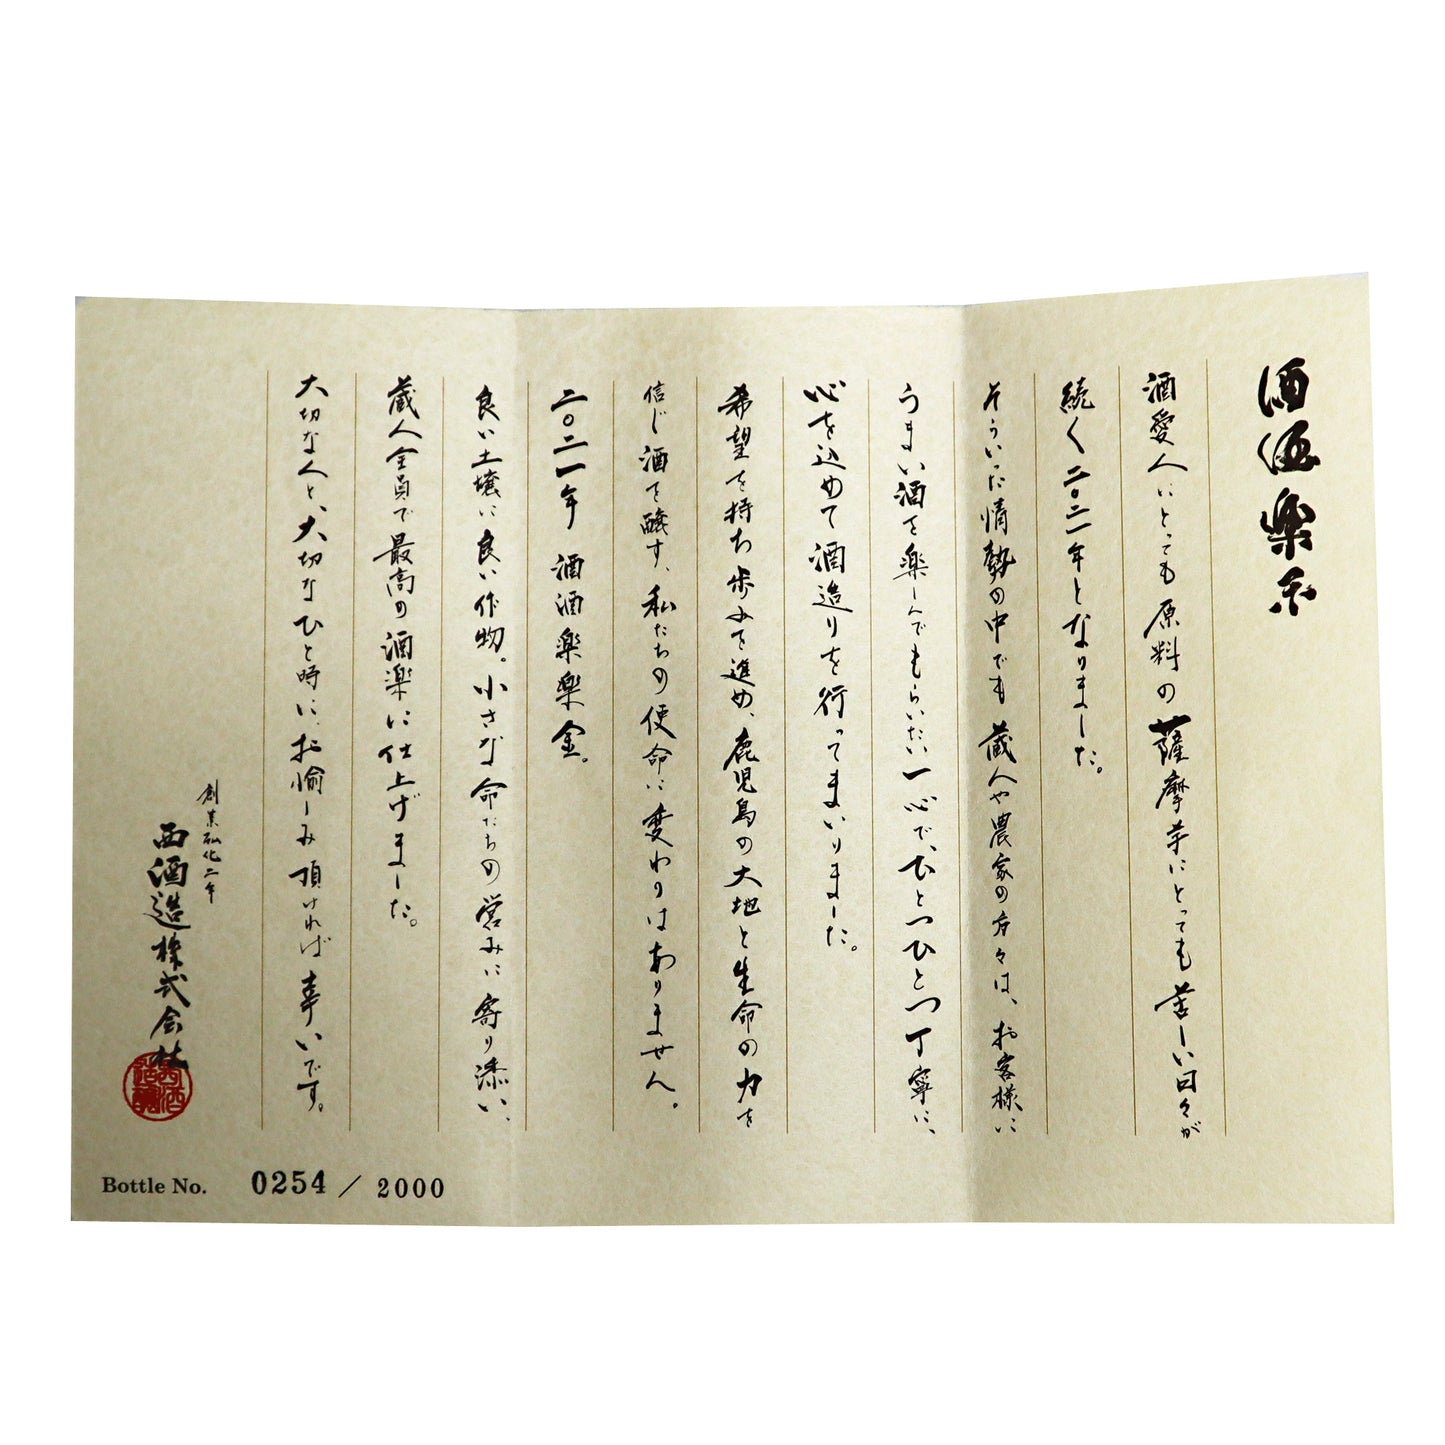 酒酒楽楽
酒愛人にとっても原料の薩摩芋にとっても苦しい日々が
続く二〇二一年となりました。
そういった情勢の中でも蔵人や農家の方々は、お客様に
うまい酒を楽しんでもらいたい一心で、ひとつひとつ丁寧に、
心を込めて酒造りを行ってまいりました。
希望を持ち歩みを進め、鹿児島の大地と生命の力を
信じ酒を醸す、私たちの使命に変わりはありません。
二〇二一年 酒酒楽楽金。
良い土壌に良い作物。小さな命たちの営みに寄り添い、
蔵人全員で最高の酒楽に仕上げました。
大切な人と、大切なひと時に、お愉しみ頂ければ幸いです。
創業弘化二年
西酒造株式会社
Bottle No. 0254 / 2000